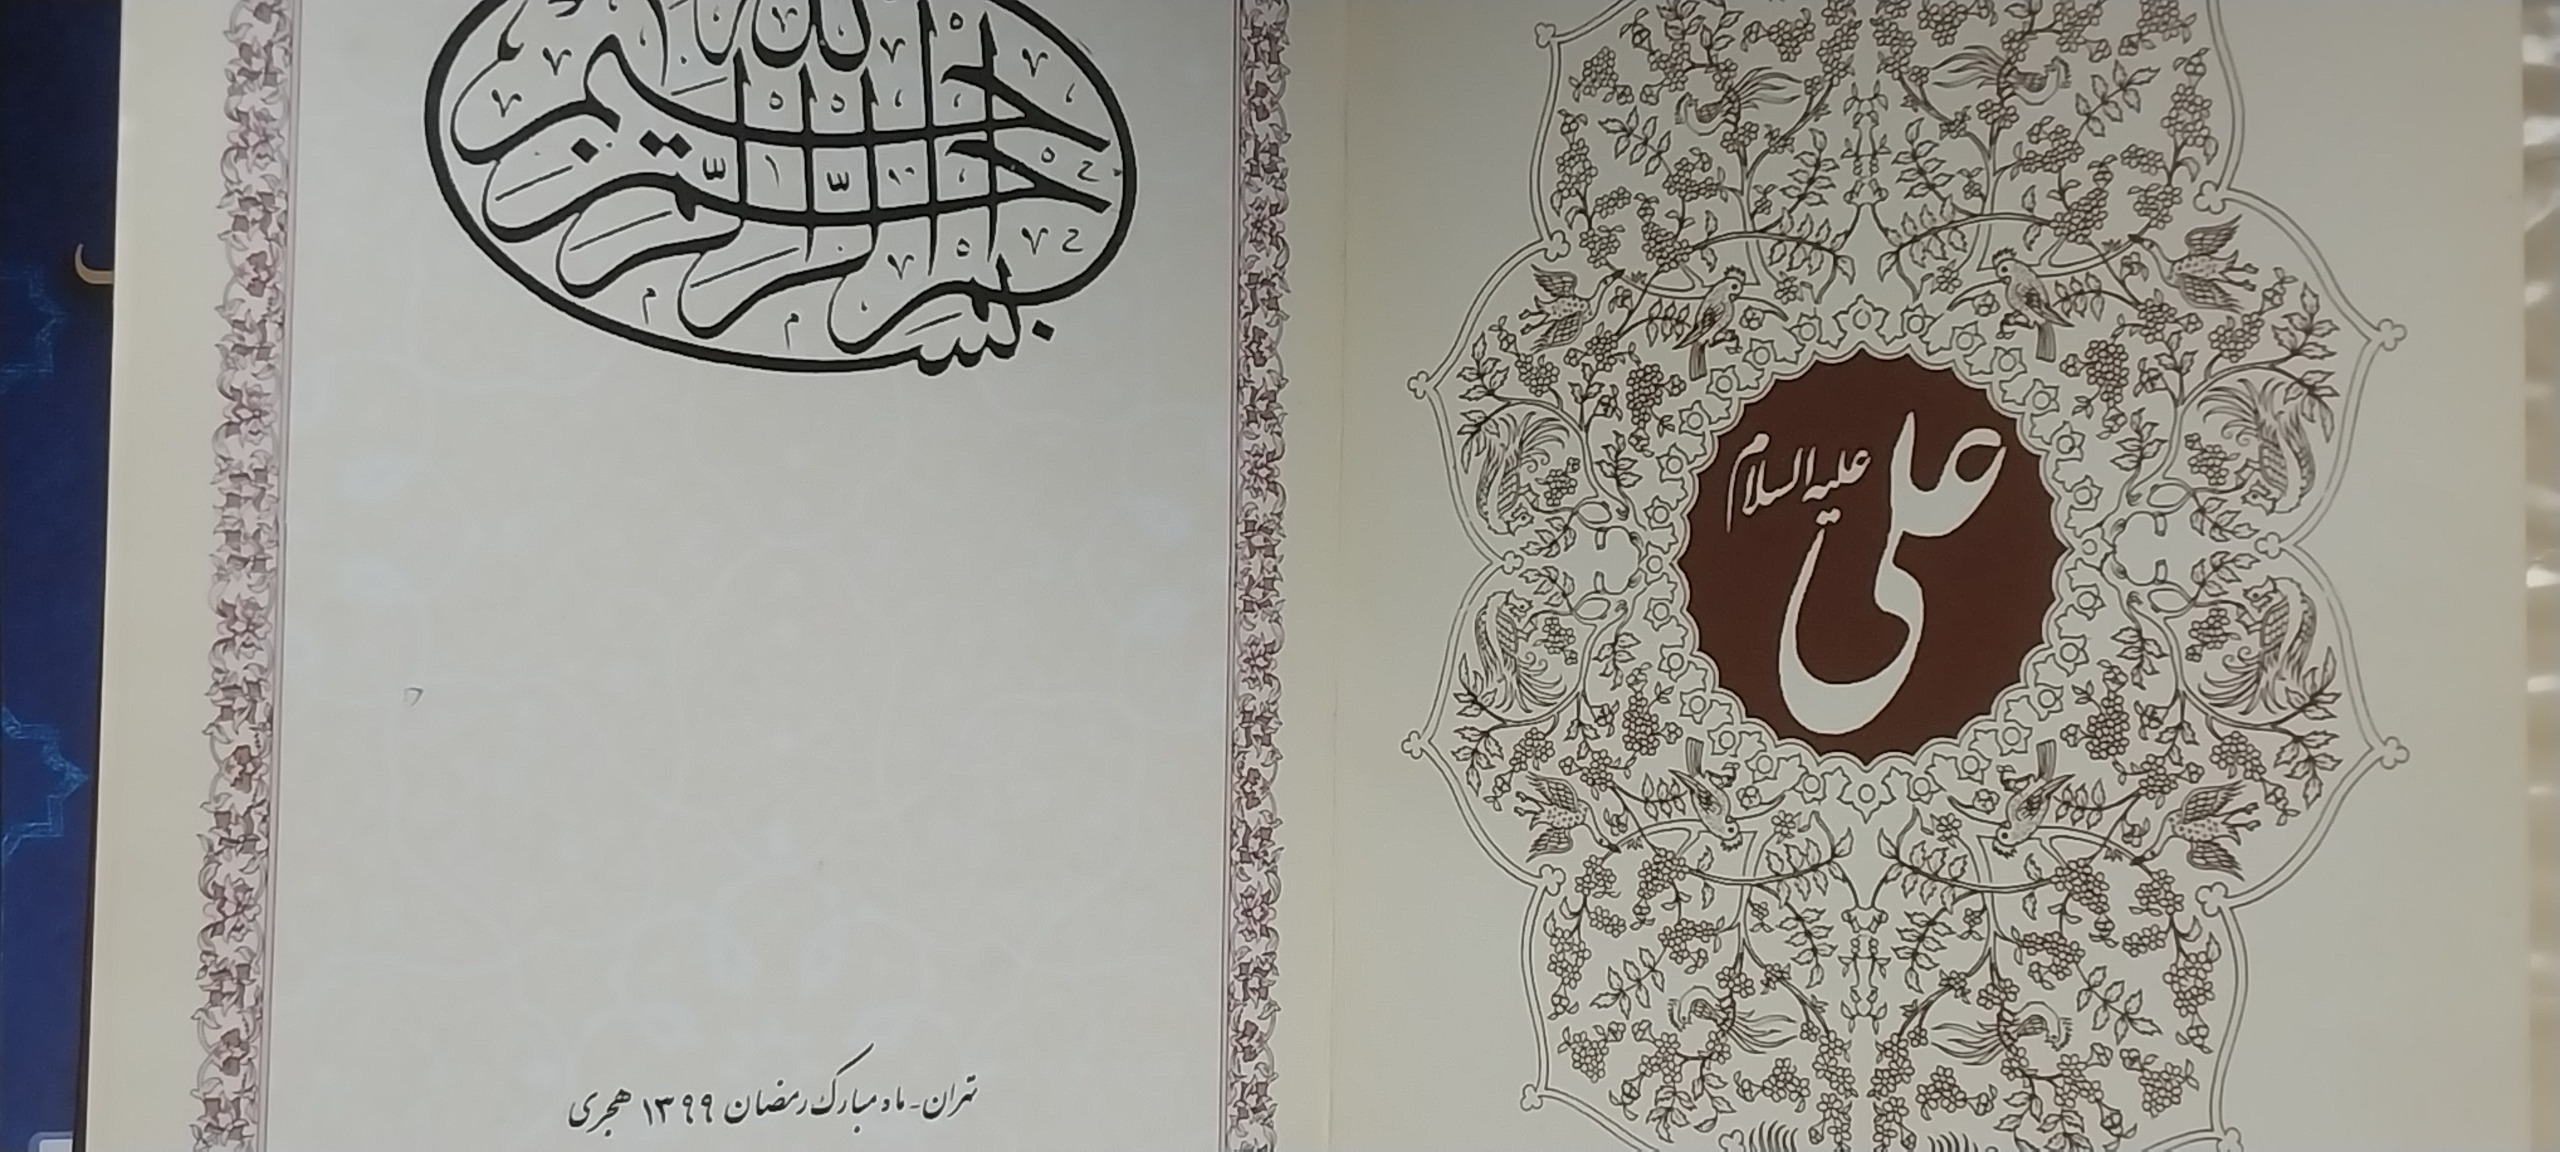 علی
علیه السلام
بسم الله الرحمن الرحیم
تهران - ماه مبارک رمضان ۱۳۹۹ هجری